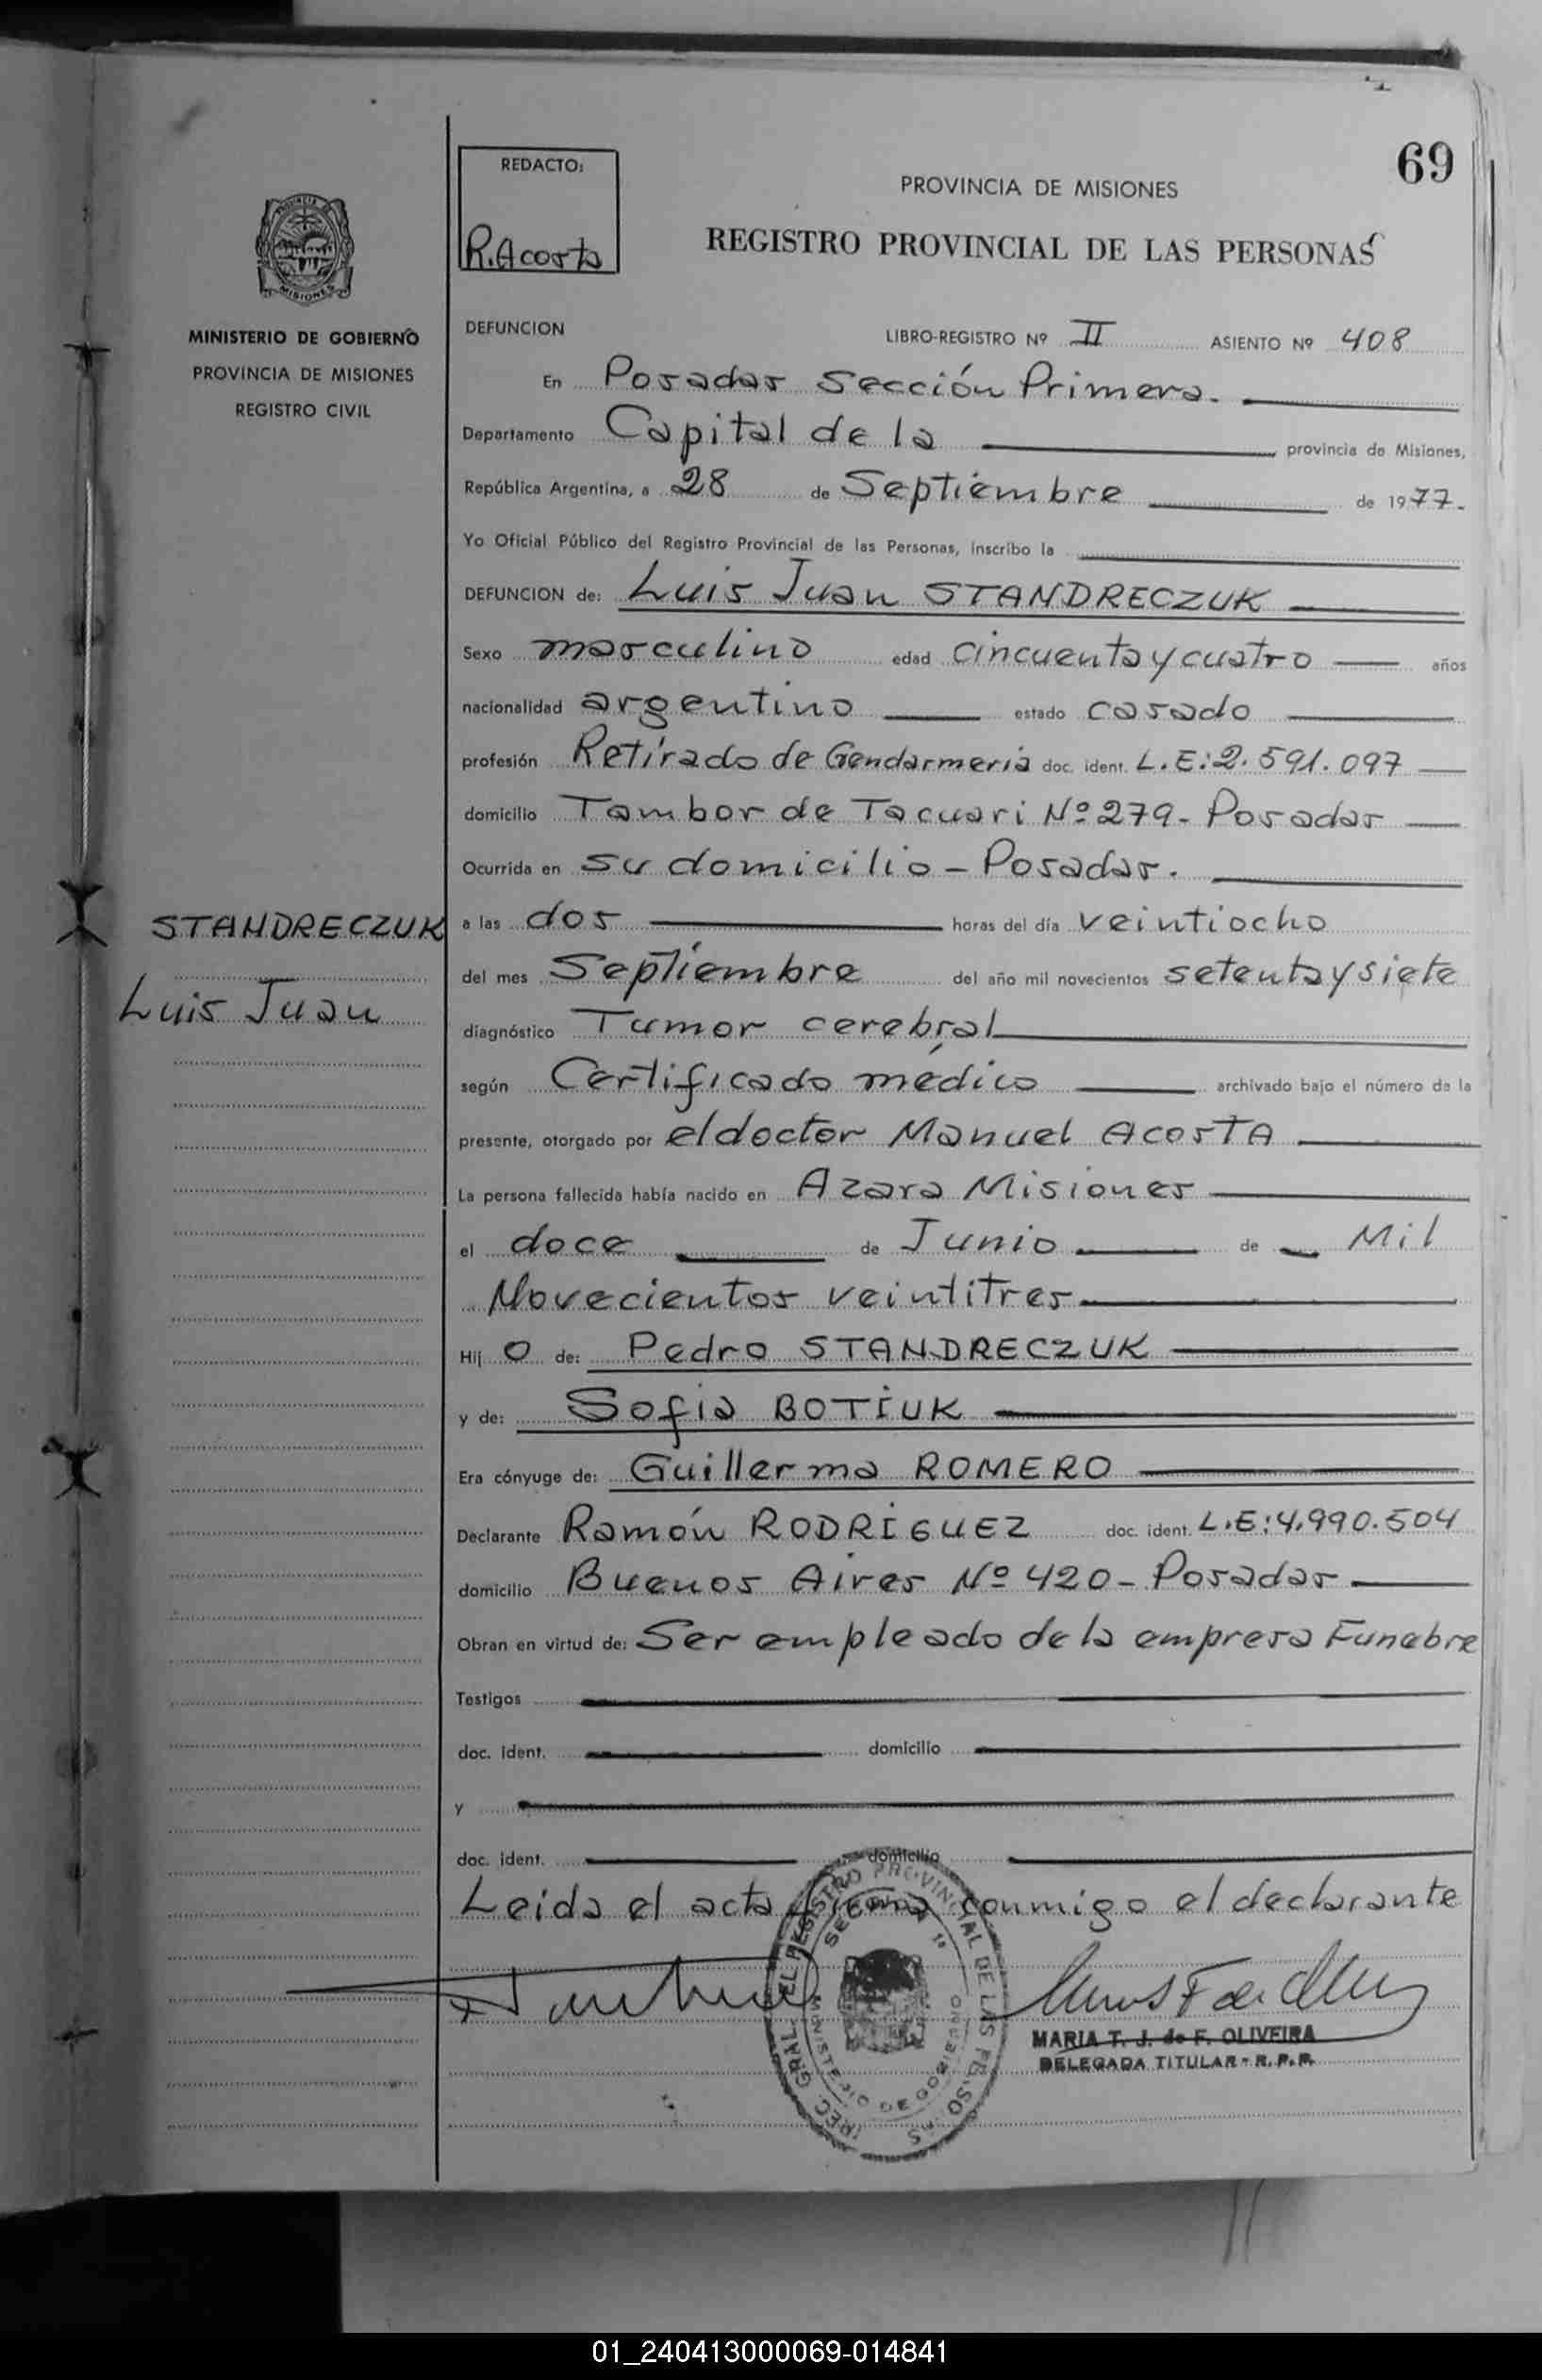 69
REDACTO:
R. Acosta
PROVINCIA DE MISIONES
REGISTRO PROVINCIAL DE LAS PERSONAS
MISIONES
MINISTERIO DE GOBIERNO
PROVINCIA DE MISIONES
REGISTRO CIVIL
DEFUNCION LIBRO-REGISTRO Nº II ASIENTO Nº 408
En Posadas Sección Primera.
Departamento Capital de la provincia de Misiones,
República Argentina, a 28 de Septiembre de 1977.
Yo Oficial Público del Registro Provincial de las Personas, inscribo la
DEFUNCION de: Luis Juan STANDRECZUK
Sexo masculino edad cincuenta y cuatro años
nacionalidad argentino estado casado
profesión Retirado de Gendarmeria doc. ident. L.E: 2.591.097
domicilio Tambor de Tacuari Nº 279 - Posadas
Ocurrida en su domicilio - Posadas.
STANDRECZUK
Luis Juan
a las dos horas del día veintiocho
del mes Septiembre del año mil novecientos setenta y siete
diagnóstico Tumor cerebral
según Certificado médico archivado bajo el número de la
presente, otorgado por el doctor Manuel ACOSTA
La persona fallecida había nacido en Azara Misiones
el doce de Junio de Mil
Novecientos veintitres
Hij o de: Pedro STANDRECZUK
y de: Sofia BOTIUK
Era cónyuge de: Guillerma ROMERO
Declarante Ramón RODRIGUEZ doc. ident. L.E: 4.990.504
domicilio Buenos Aires Nº 420 - Posadas
Obran en virtud de: Ser empleado de la empresa Funebre
Testigos
doc. ident. domicilio
y
doc. ident. domicilio
Leida el acta firma conmigo el declarante
MARIA T. J. de F. OLIVEIRA
DELEGADA TITULAR - R.P.P.
01_240413000069-014841